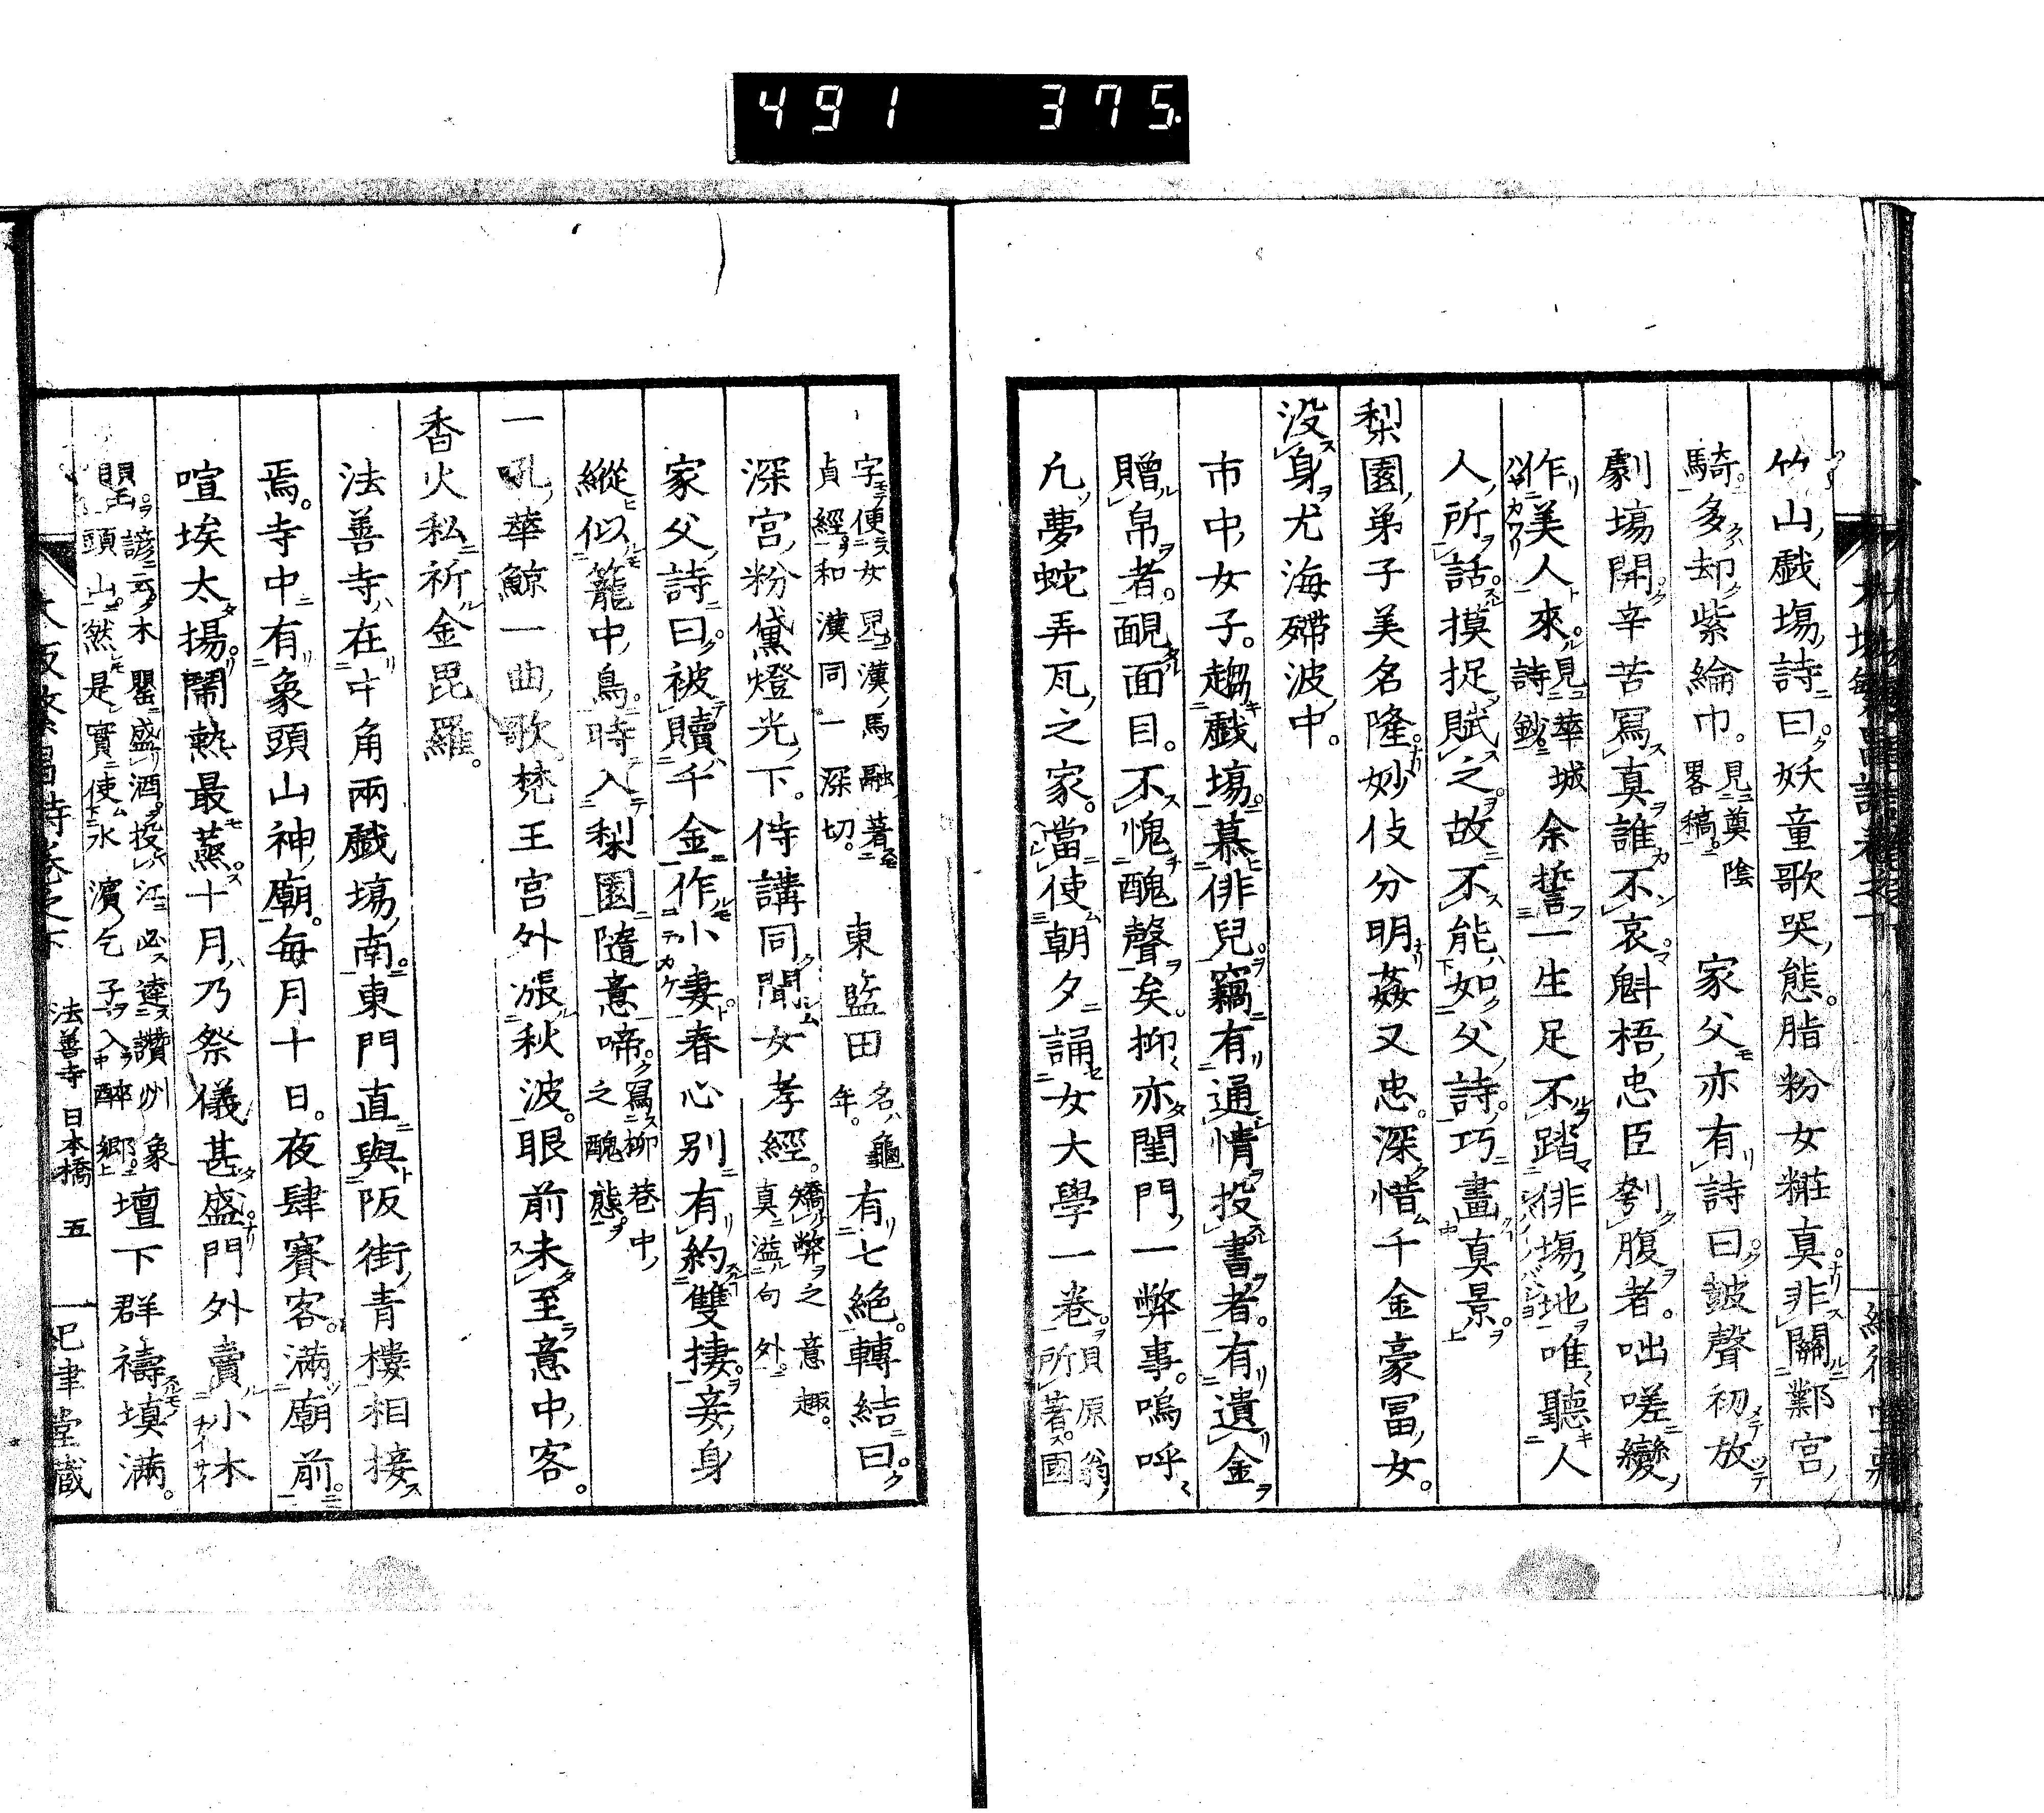 491 375.
竹山戯塲詩曰妖童歌哭態。脂粉女粧真非關鄴宮
騎多却紫綸巾。見奠陰畧稿 家父亦有詩曰皷聲初放
劇塲開辛苦冩真誰不哀魁梧忠臣刳腹者。咄嗟變
作美人來見華城詩鈔 余誓一生足不踏俳塲地唯聽人
人所話摸捉賦之故不能如父詩巧畫真景。
梨園弟子美名隆妙伎分明姦又忠。深惜千金豪冨女。
没身尤海殢波中。
市中女子。趨戯塲。慕俳兒竊有通情投書者。有遺金
贈帛者。靦面目。不愧醜聲矣。抑亦閨門一弊事。嗚呼
凢夢蛇弄瓦之家。當使朝夕誦女大學一卷。貝原翁所著國
字便女兒漢馬融著女貞經和漢同一深切。 東監田名龜年。有七絶。轉結曰
深宮粉黛燈光下。侍講同聞女孝經。矯弊之意趣。真溢句外。
家父詩曰被贖千金作小妻春心別有約雙捿。妾身
縱似籠中鳥。時入梨園隨意啼冩柳巷中之醜態
一吼華鯨一曲歌。梵王宮外漲秋波。眼前未至意中客。
香火私祈金毘羅。
法善寺在中角兩戯塲南。東門直與阪街青樓相接
焉。寺中有象頭山神廟。每月十日。夜肆賽客。滿廟前。
喧埃太揚鬧熱最蒸。十月乃祭儀甚盛門外賣小木
罌。諺云木罌盛酒投江必達讚州象頭山。然是實使水濱乞子入醉鄉 壇下群禱填滿。
大阪繁昌詩卷之下 法善寺 日本橋 五